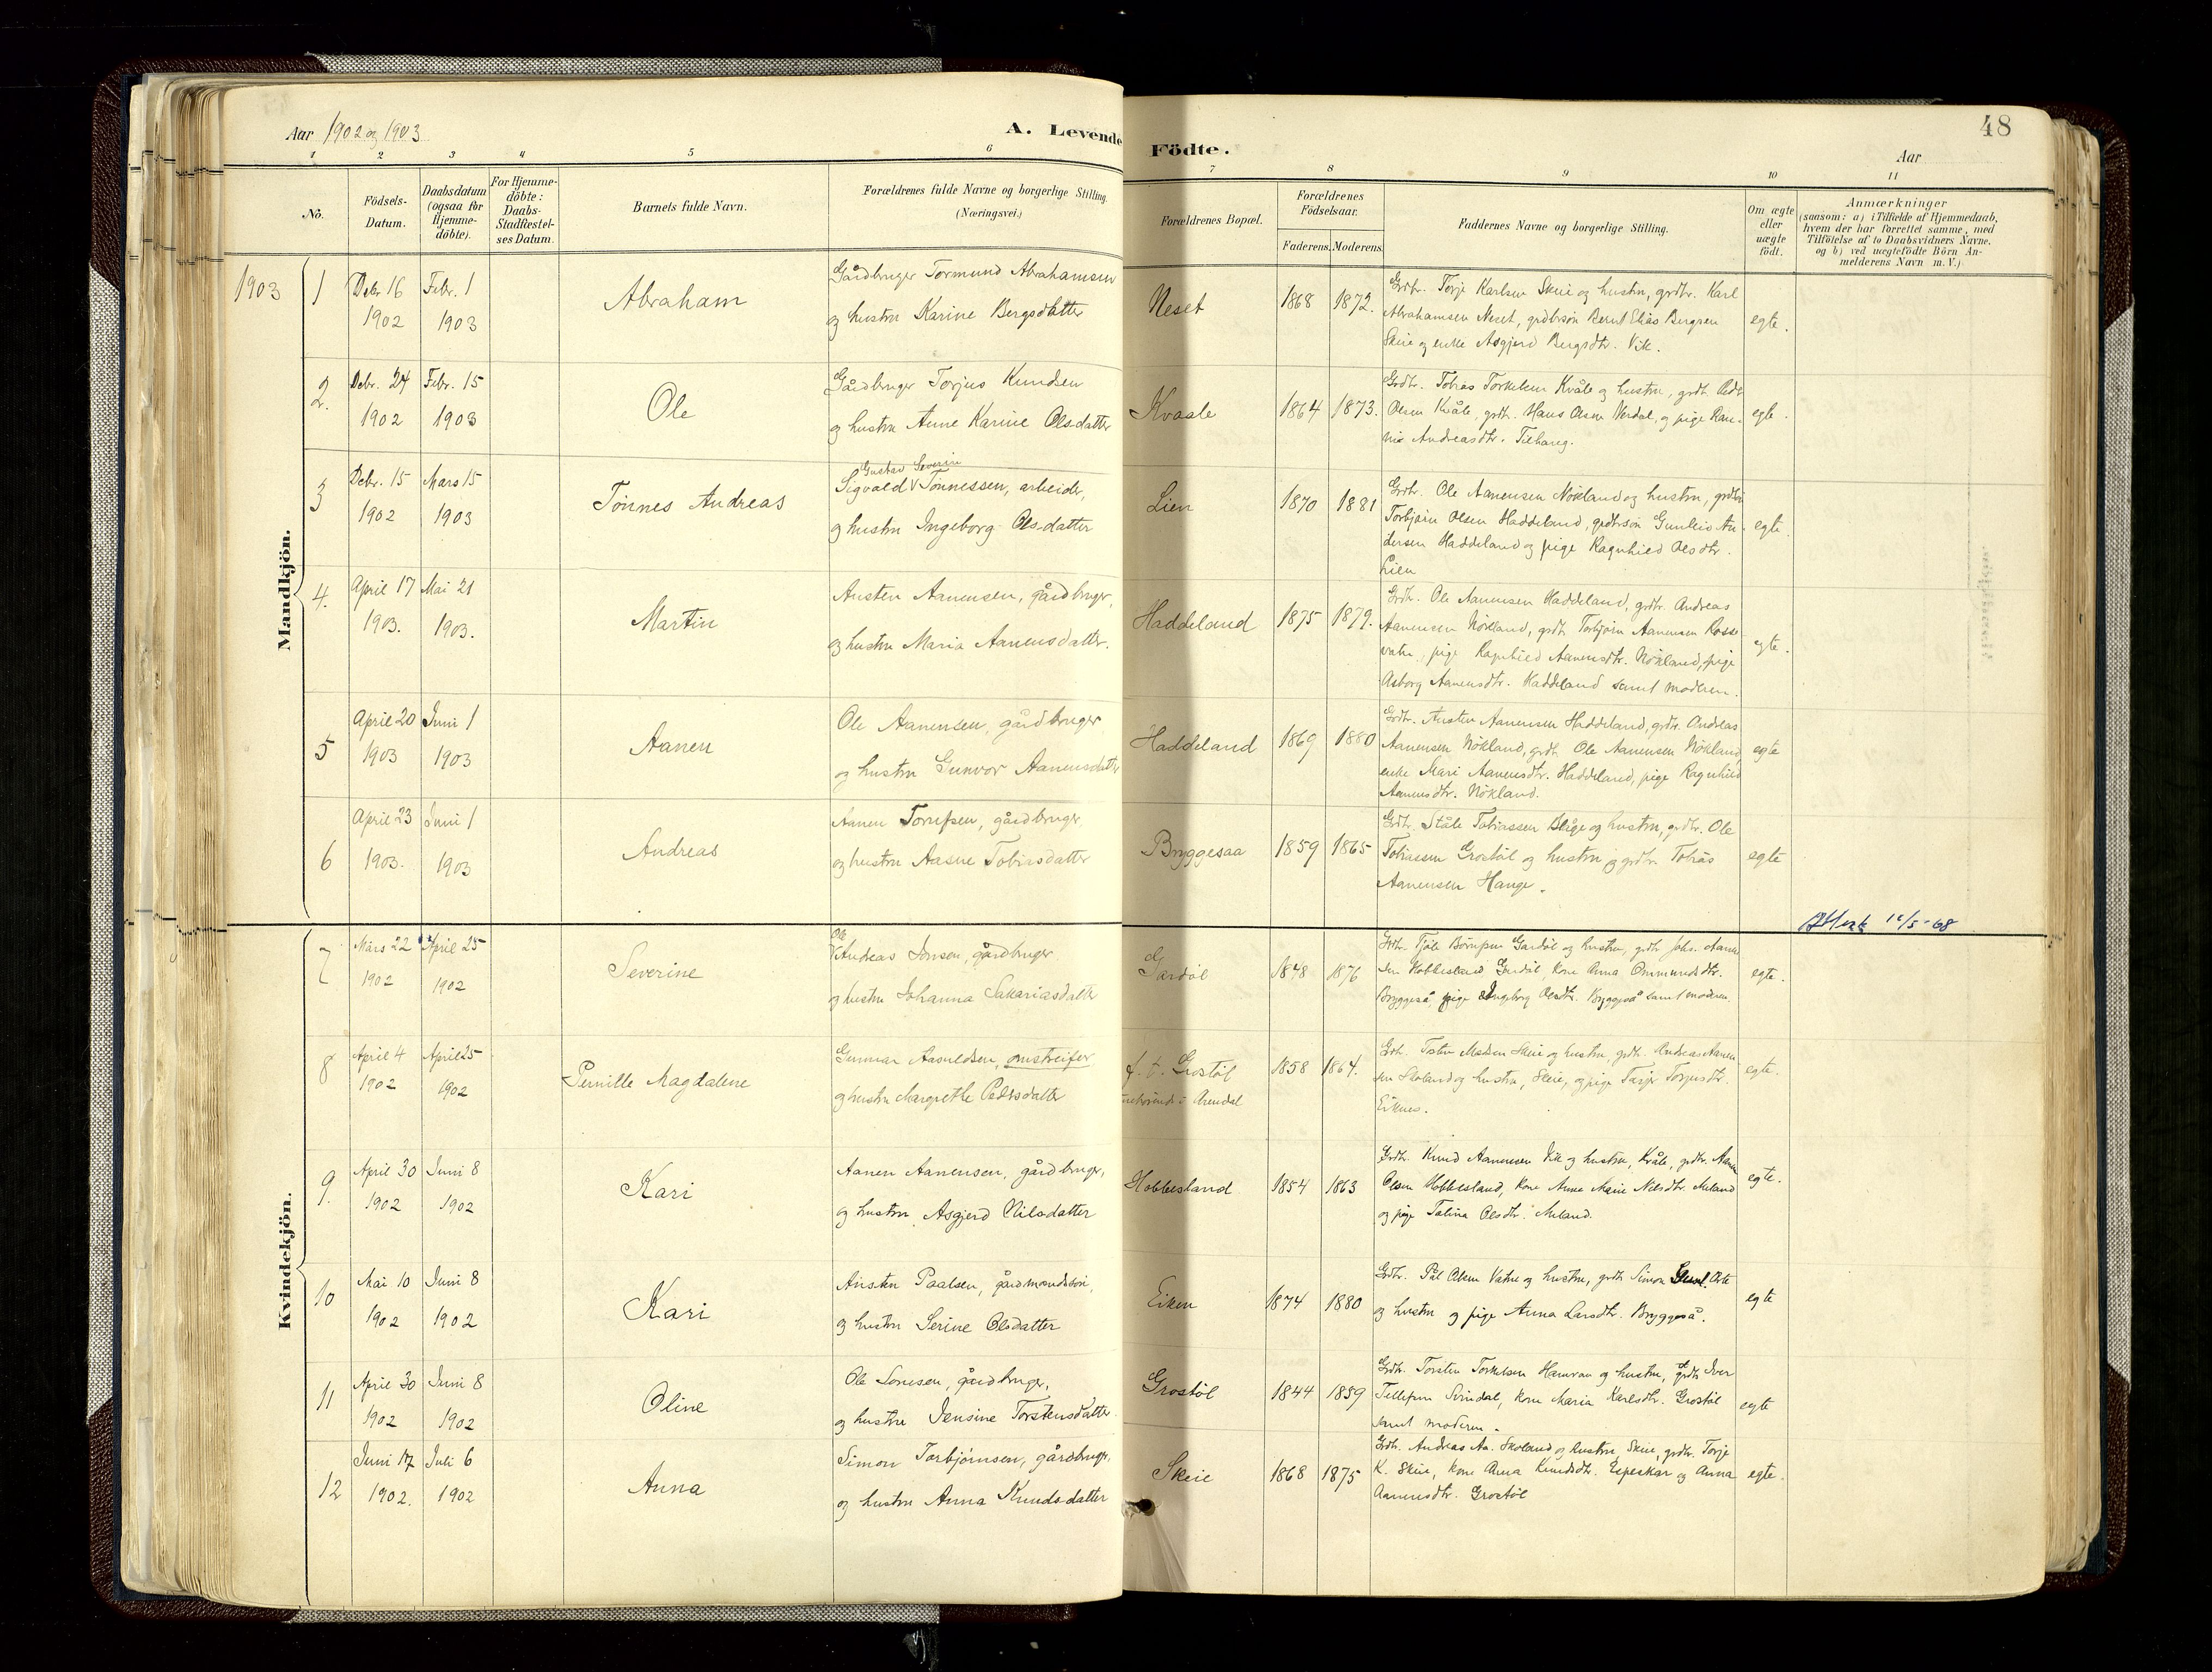 48
Aar 1902 og 1903
A. Levende Födte.
Aar
1 2 3 4 5 6 7 8 9 10 11
No.
Födsels-Datum.
Daabsdatum (ogsaa for Hjemme-döbte).
For Hjemme-döbte: Daabs-Stadfæstel-ses Datum.
Barnets fulde Navn.
Forældrenes fulde Navne og borgerlige Stilling. (Næringsvei.)
Forældrenes Bopæl.
Forældrenes Födselsaar.
Faderens. Moderens.
Faddernes Navne og borgerlige Stilling.
Om ægte eller uægte födt.
Anmærkninger
(saasom: a) i Tilfælde af Hjemmedaab, hvem der har forrettet samme, med Tilföielse af to Daabsvidners Navne, og b) ved uægtefödte Börn An-melderens Navn m. V.)
Mandkjön.
1903
1 Debr 16 1902 Febr. 1 1903
Abraham
Gårdbruger Tormund Abrahamsen
og hustru Karine Bergsdatter
Neset 1868 1872.
Grdbr. Torje Karlsen Skeie og hustru, grdbr. Karl
Abrahamsen Neset, grdbrsön Bernt Elias Bergsen
Skeie og enke Asgjerd Bergsdtr. Vik.
egte.
2. Debr. 24 1902 Febr. 15 1903
Ole
Gårdbruger Torjus Knudsen
og hustru Anne Karine Olsdatter
Kvaale 1864 1873.
Grdbr. Tobias Torkelsen Kvåle og hustru, grdb.
Olsen Kvåle, grdb. Hans Olsen Verdal, og pige Ran-
nie Andreasdtr.
egte.
3 Debr. 15 1902 Mars 15 1903
Tönnes Andreas
Gustav Severin
Sigvald V Tönnessen, arbeider,
og hustru Ingeborg Olsdatter
Lien 1870 1881
Grdbr. Ole Aanensen Nökland og hustru, grdbr
Torbjörn Olsen Haddeland, grdbrsön Gunleiv An-
dersen Haddeland og pige Ragnhild Olsdtr.
Lien
egte.
4. April 17 1903. Mai 21 1903.
Martin
Austen Aanensen, gårdbruger,
og hustru Maria Aanensdatter.
Haddeland 1875 1879.
Grdb. Ole Aanensen Haddeland, grdbr. Andreas
Aanensen Nökland, grdb. Torbjörn Aanensen Rosse
vatn, pige Ragnhild Aanensdtr. Nökland, pige
Asborg Aanensdtr. Haddeland samt moderen.
egte.
5 April 20 1903 Juni 1 1903
Aanen
Ole Aanensen, gårdbruger
og hustru Gunvor Aanensdatter
Haddeland 1869 1880
Grdb. Austen Aanensen Haddeland, grdb. Andreas
Aanensen Nökland, grdb. Ole Aanensen Nökland,
enke Mari Aanensdtr. Haddeland, pige Ragnhild
Aanensdtr. Nökland.
egte
6 April 23 1903. Juni 1 1903
Andreas
Aanen Torjussen, gårdbruger,
og hustru Aasne Tobiasdatter
Bryggesaa 1859 1865
Grdb. Ståle Tobiassen Blige og hustru, grdbr. Ole
Tobiassen Grostöl og hustru og grdb. Tobias
Aanensen Hauge.
egte
Kvindekjön.
Attest 10/5-68
7 Mars 22 1902 April 25 1902
Severine
Ole
V Andreas Jonsen, gårdbruger
og hustru Johanna Sakariasdatter
Gardöl 1848 1876
Grdb. Gardöl og hustru, grdb. Johs. Aanen
sen Hobbesland Gardöl, kone Anna Ommundsdtr.
Bryggeså, pige Ingeborg Olsdtr. Bryggeså samt moderen.
egte.
8 April 4 1902 April 25 1902
Pernille Magdalene
Gunnar Aanuldsen, omstreifer
og hustru Margrethe Pedersdatter
f. t. Grostöl Arendal 1858 1864.
Grdb. Madsen Skeie og hustru, grdb. Andreas Aanen
sen Skoland og hustru, Skeie, og pige Torjusdtr.
Eiknes.
egte.
9. April 30 1902 Juni 8 1902
Kari
Aanen Aanensen, gårdbruger,
og hustru Asgjerd Nilsdatter
Hobbesland 1854 1863
Grdb. Knud Aanensen Vik og hustru, Kvåle, grdbr. Aanen
Olsen Hobbesland, kone Anne Marie Nilsdtr. Meland
og pige Talina Olsdtr. Meland.
egte.
10 Mai 10 1902 Juni 8 1902
Kari
Austen Paalsen, gårdmandssön,
og hustru Serine Olsdatter
Eiken 1874 1880
Grdb. Pål Olsen Vatne og hustru, grdb Simon
og hustru og pige Anna Larsdtr. Bryggeså.
egte
11 April 30 1902 Juni 8 1902
Oline
Ole Jonsen, gårdbruger,
og hustru Jensine Torstensdatter
Grostöl 1844 1859
Grdb. Torsten Torkelsen Hamran og hustru, grdb Iver
Tellefsen Svindal, kone Maria Karlsdtr. Grostöl
samt moderen.
egte
12 Juni 17 1902. Juli 6 1902
Anna
Simon Torbjörnsen, gårdbruger,
og hustru Anna Knudsdatter
Skeie 1868 1875
Grdb. Andreas Aa. Skoland og hustru Skeie, grdbr. Torje
K. Skeie, kone Anna Knudsdtr. Espeskar og Anna
Aanensdtr. Grostöl
egte.